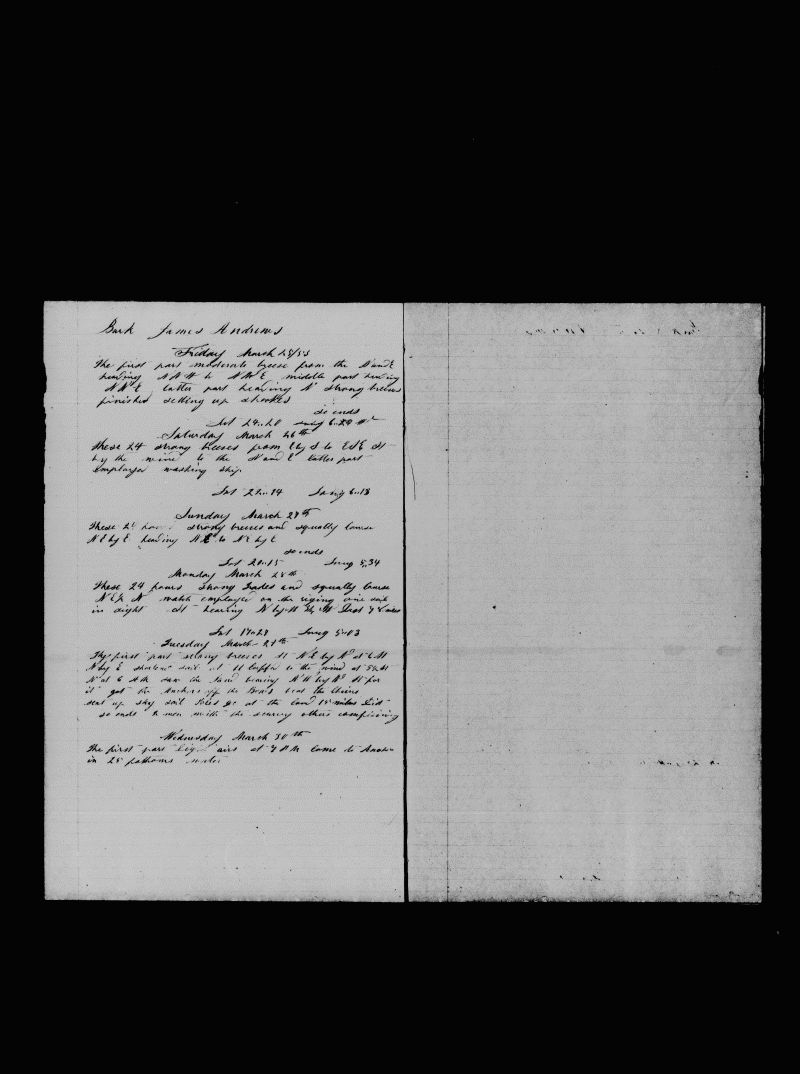 Bark James Andrews
Friday March 25/53
The first part moderate breese from the N and E
heading N N W to N N E middle part heading
N N E latter part heading N strong breeses
finished setting up shrouds
so ends
Lat 24..20 Long 6.29 W
Saturday March 26th
These 24 strong breeses from E by S to E S E St
by the wind to the N and E latter part
employed washing ship
Lat 22..14 Long 6..18
Sunday March 27th
These 24 hours strong breeses and squally Course
N E by E heading N E to N E by E
so ends
Lat 20..15 Long 5,34
Monday March 28th
These 24 hours strong trades and squally Course
N E by N watch employed on the riging one sail
in sight St bearing N by W
Lat 17..27 Long 5..03
Tuesday March 29th
The first part strong breeses St N E by N at 6 M
N by E shortened sail at 11 luffed to the wind at
N at 6 A M saw the land bearing N W by N St for
it got the Anchors off the Bows bent the Chains
sent up sky sail Poles &c at the land 15 miles Dist
so ends 2 men with the scurvy others complaining
Wednesday March 30th
The first part light airs at 4 P M Come to Anchor
in 25 fathoms water